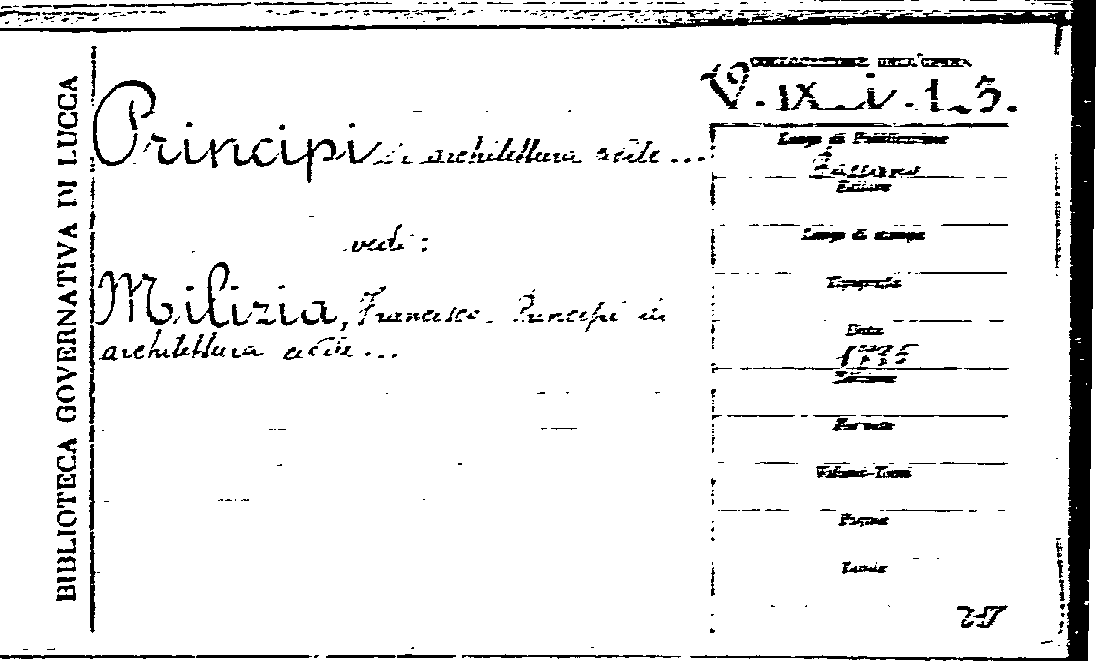 BIBLIOTECA GOVERNATIVA DI LUCCA
Principi di architettura civile ...
vedi :
Milizia, Francesco. Principi di
architettura civile ...
COLLOCAZIONE DELL'OPERA
Luogo di Pubblicazione
Bassano
Editore
Luogo di stampa
Tipografia
Data
Formato
Volumi-Tomi
Pagine
Tavole